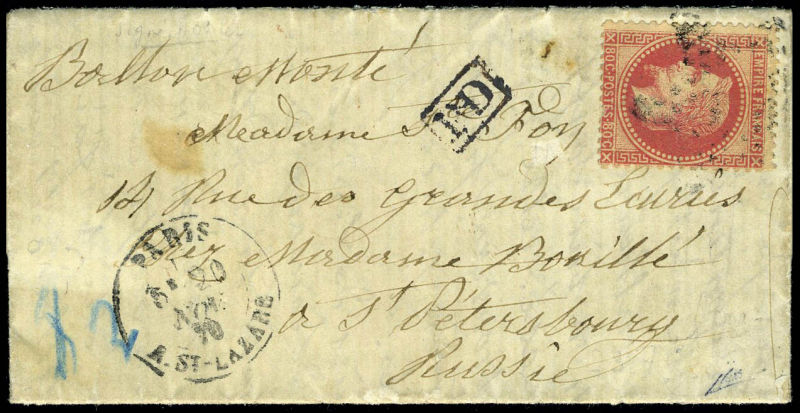 Ballon Monté
PD
Madame St Foy
14 Rue des Grandes Ecuries
chez Madame Bouillé
a St Pétersbourg
Russie
PARIS
20
NOV
70
R. ST-LAZARE
EMPIRE FRANÇAIS
80C·POSTES·80C
2